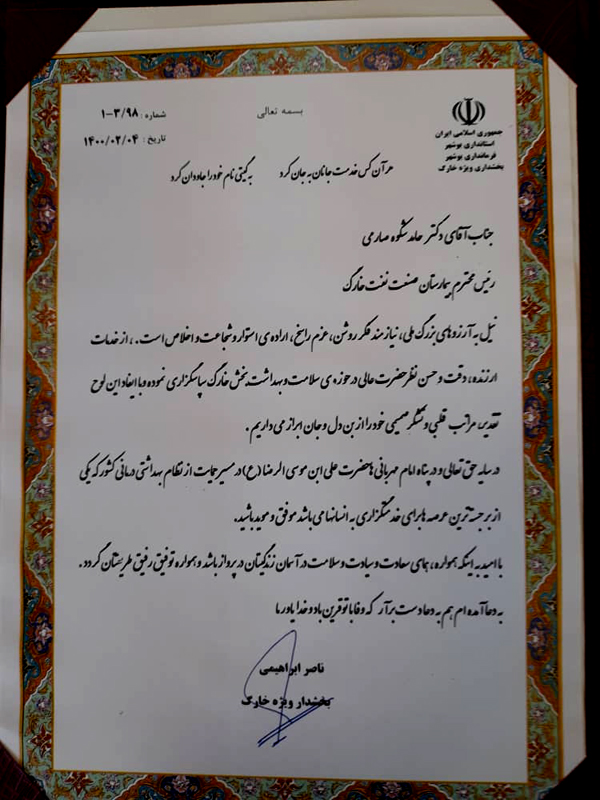 بسمه تعالی
جمهوری اسلامی ایران
استانداری بوشهر
فرمانداری بوشهر
بخشداری ویژه خارک
شماره : ۱-۳/۹۸
تاریخ : ۱۴۰۰/۰۲/۰۴
هر آن کس خدمت جانان به جان کرد به گیتی نام خود را جاودان کرد
جناب آقای دکتر حامد شکوه صارمی
رئیس محترم بیمارستان صنعت نفت خارگ
نیل به آرزوهای بزرگ ملی، نیازمند فکر روشن، عزم راسخ، اراده ی استوار و شجاعت و اخلاص است. ، از خدمات
ارزنده، دقت و حسن نظر حضرت عالی در حوزه ی سلامت و بهداشت بخش خارک سپاسگزاری نموده و با ایفاد این لوح
تقدیر، مراتب قلبی و تشکر صمیمی خود را از بن دل و جان ابراز می داریم .
در سایه حق تعالی و در پناه امام مهربانی ها حضرت علی ابن موسی الرضا (ع) در مسیر حمایت از نظام بهداشتی درمانی کشور که یکی
از برجسته ترین عرصه ها برای خدمتگزاری به انسانها می باشد موفق و موید باشید.
با امید به اینکه همواره، همای سعادت و سیادت و سلامت در آسمان زندگیتان در پرواز باشد و همواره توفیق رفیق طریقتان گردد.
به دعا آمده ام هم به دعا دست برآر که وفا با تو قرین باد و خدا یاور ما
ناصر ابراهیمی
بخشدار ویژه خارک